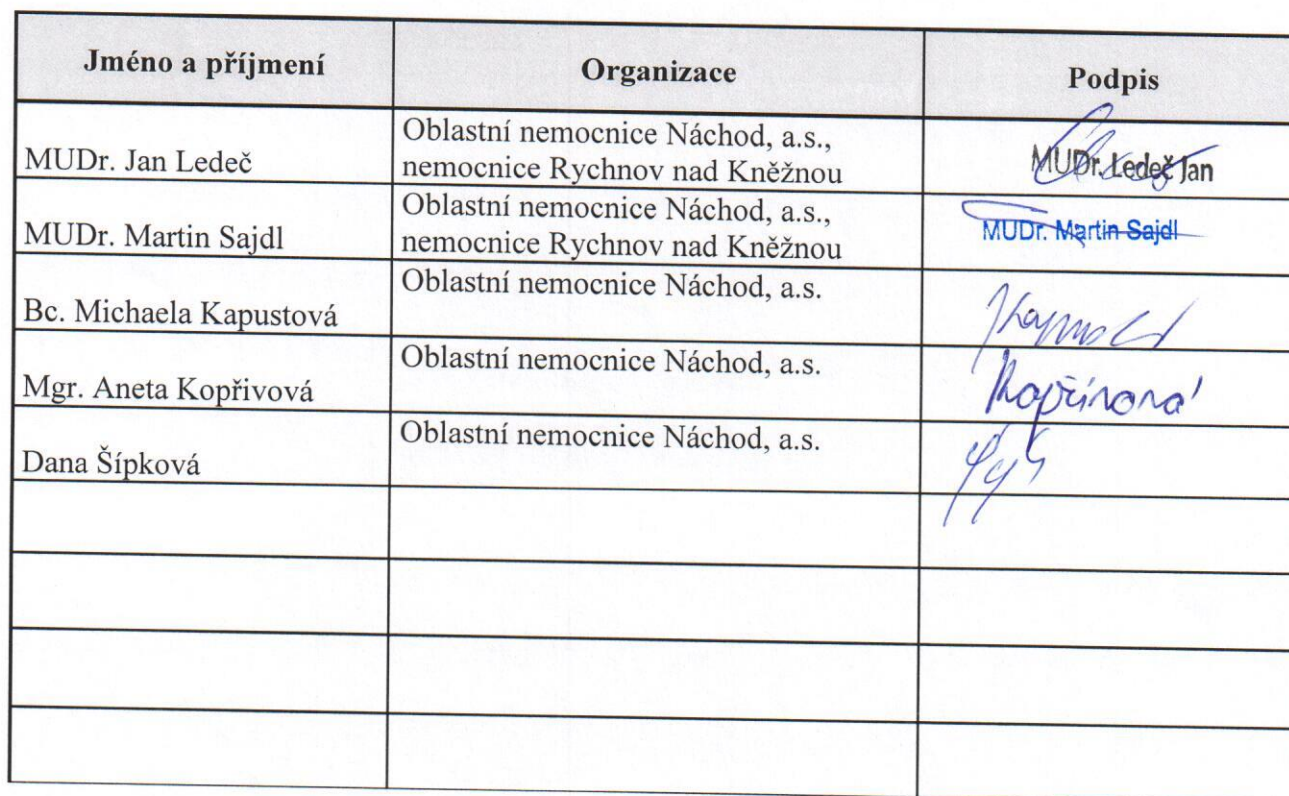 Jméno a příjmení
Organizace
Podpis
MUDr. Jan Ledeč
Oblastní nemocnice Náchod, a.s.,
nemocnice Rychnov nad Kněžnou
MUDr. Ledeč Jan
MUDr. Martin Sajdl
Oblastní nemocnice Náchod, a.s.,
nemocnice Rychnov nad Kněžnou
MUDr. Martin Sajdl
Bc. Michaela Kapustová
Oblastní nemocnice Náchod, a.s.
Mgr. Aneta Kopřivová
Oblastní nemocnice Náchod, a.s.
Kopřivová
Dana Šípková
Oblastní nemocnice Náchod, a.s.